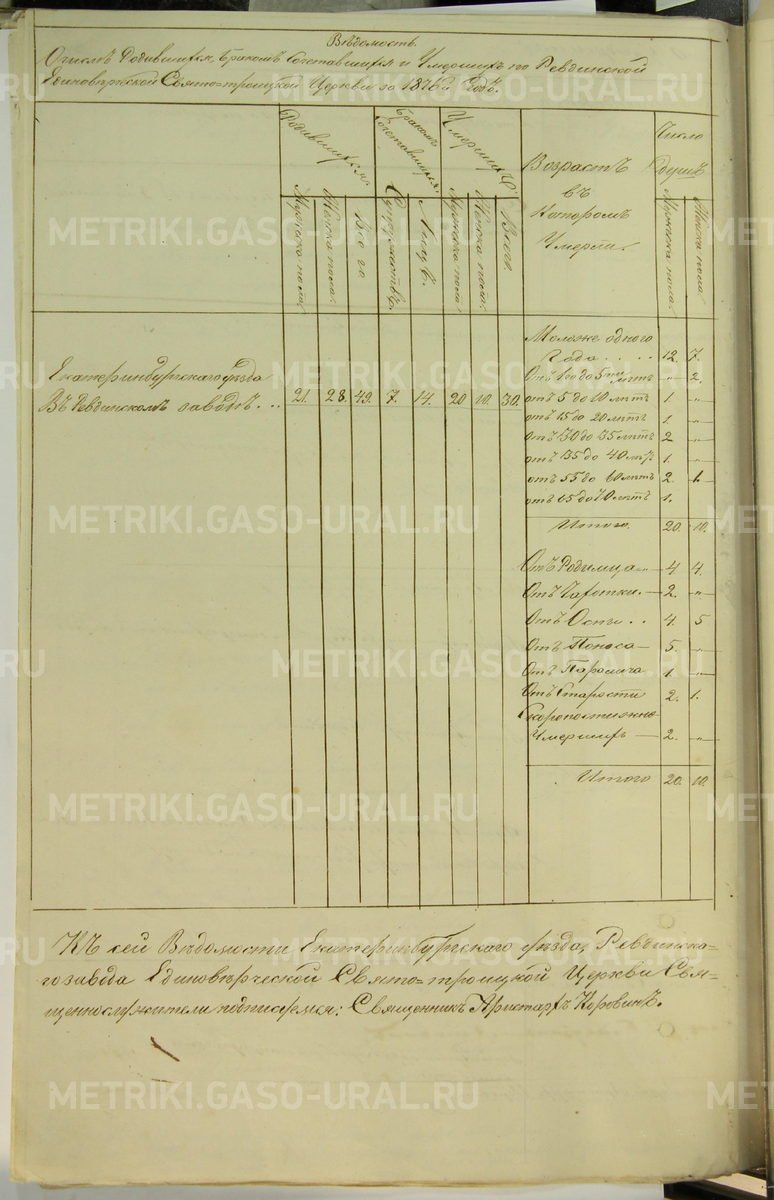 Вѣдомость.
О числѣ Родившихся, бракомъ Сочетавшихся и Умершихъ по Ревдинской
Единовѣрческой Свято=троицкой Церкви за 1876й Годъ.
Родившихся.
Бракомъ Сочетавшихся.
Умершихъ.
Возрастъ
въ
которомъ
Умерли.
Число
душъ
Мужеска пола.
Женска пола.
Всего
Супружествъ.
Лицъ.
Мужеска пола
Женска пола.
Всего.
Мужеска пола.
Женска пола.
Екатеринбургскаго уѣзда
Въ Ревдинскомъ заводѣ. .. 21. 28. 49. 7. 14. 20 10. 30.
Моложе одного
Года . . . . 12. 7.
Отъ 1го до 5ти лѣтъ „ 2.
отъ 5 до 10 лѣтъ 1. „
отъ 15 до 20 лѣтъ 1. „
отъ 30 до 35 лѣтъ 2 „
отъ 35 до 40 лѣтъ 1. „
отъ 55 до 60 лѣтъ 2. 1.
отъ 65 до 70 лѣтъ 1.
Итого. 20. 10.
Отъ Родимца 4 4.
Отъ Чахотки. 2. „
Отъ Оспы . . 4. 5
Отъ Поноса 5. „
Отъ Паралича 1. „
Отъ Старости 2. 1.
Скоропостижно
Умершихъ 2. „
Итого 20. 10.
Къ сей Вѣдомости Екатеринбургского уѣзда, Ревдинска-
го завода Единовѣрческой Свято=троицкой Церкви Свя-
щеннослужители подписуемся: Священникъ Аристархъ Коровинъ.
METRIKI.GASO-URAL.RU